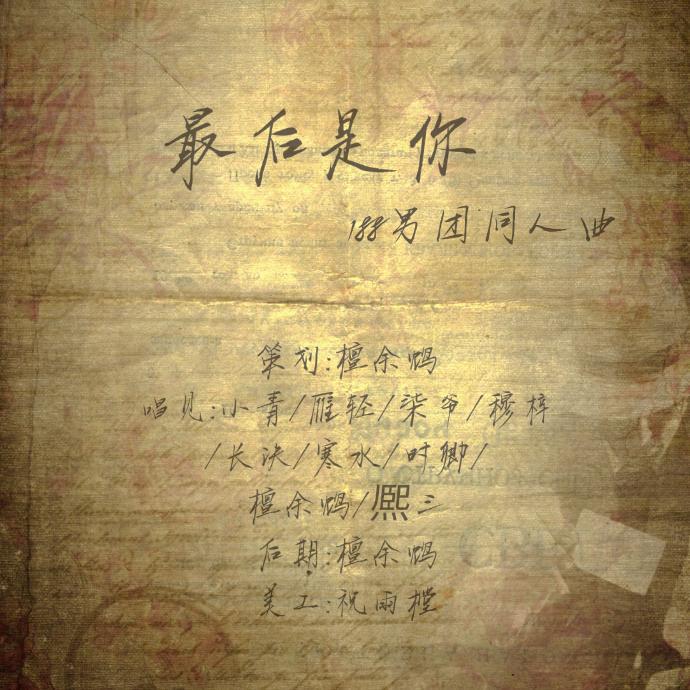 最后是你
188男团同人曲
策划:檀余鸩
唱见:小青/雁轻/柒爷/穆梓
/长决/寒水/时卿/
檀余鸩/熙三
后期:檀余鸩
美工:祝雨樘